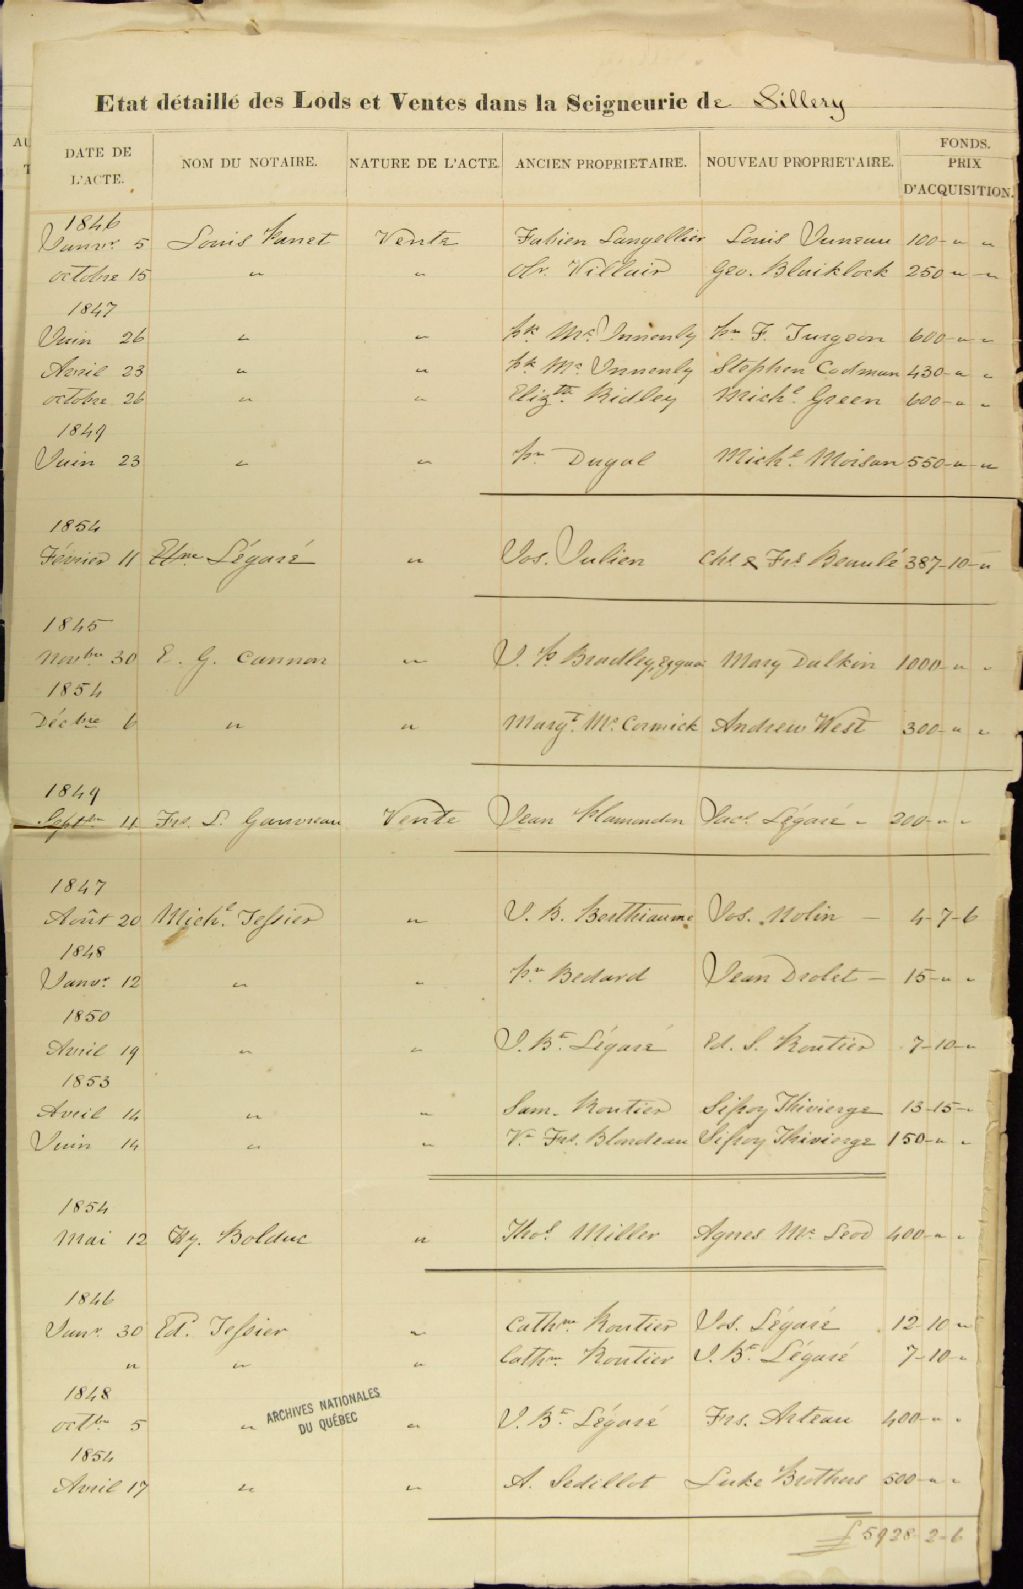 Etat détaillé des Lods et Ventes dans la Seigneurie de Sillery
DATE DE L'ACTE. NOM DU NOTAIRE. NATURE DE L'ACTE. ANCIEN PROPRIETAIRE. NOUVEAU PROPRIETAIRE. FONDS. PRIX D'ACQUISITION.
1846
Janvr. 5 Louis Panet Vente Fabien Langellier Louis Juneau 100 - " "
octobre 15 " " Ol. Villair Geo. Blaiklock 250 - " - "
1847
Juin 26 " " Pk. Mc. Innenly Pre F. Turgeon 600 - " "
Avril 23 " " Pk. Mc. Innenly Stephen Codman 430 - " "
octobre 26 " " Elizth. Ridley Michl. Green 600 - " "
1849
Juin 23 " " Pre Dugal Michl. Moisan 550 - " - "
1854
Février 11 Etne Légaré " Jos. Julien Chs. & Frs. Beaulé 387 - 10 - "
1845
Novbre 30 E. G. Cannon " J. P Bradley, Esqua Mary Dalkin 1000 - " "
1854
Décbre 6 " " Margt. Mc. Cormick Andrew West 300 - " "
1849
Septbre 11 Frs. L. Gauvreau Vente Jean Plamondon Jacs. Légaré - 200 - " "
1847
Août 20 Michl. Tessier " J. B. Berthiaume Jos. Nolin - 4 - 7 - 6
1848
Janvr. 12 " " Pre Bedard Jean Drolet - 15 - " "
1850
Avril 19 " " J. Bte. Légaré Ed. S. Routier 7 - 10 - "
1853
Avril 14 " " Sam. Routier Sifroy Thivierge 13 - 15 - "
Juin 14 " " Ve. Frs. Blondeau Sifroy Thivierge 150 - " "
1854
Mai 12 Hy. Bolduc " Thos. Miller Agnes Mc. Leod 400 - " "
1846
Janvr. 30 Ed. Tessier " Cathne. Routier Jos. Légaré 12 - 10 - "
" " " Cathne. Routier J. Bte. Légaré 7 - 10 - "
1848
octbre 5 " " J. Bte. Légaré Frs. Arteau 400 - " "
ARCHIVES NATIONALES
DU QUÉBEC
1854
Avril 17 " " A. Sedillot Luke Brothers 500 - " "
£ 5928 - 2 - 6